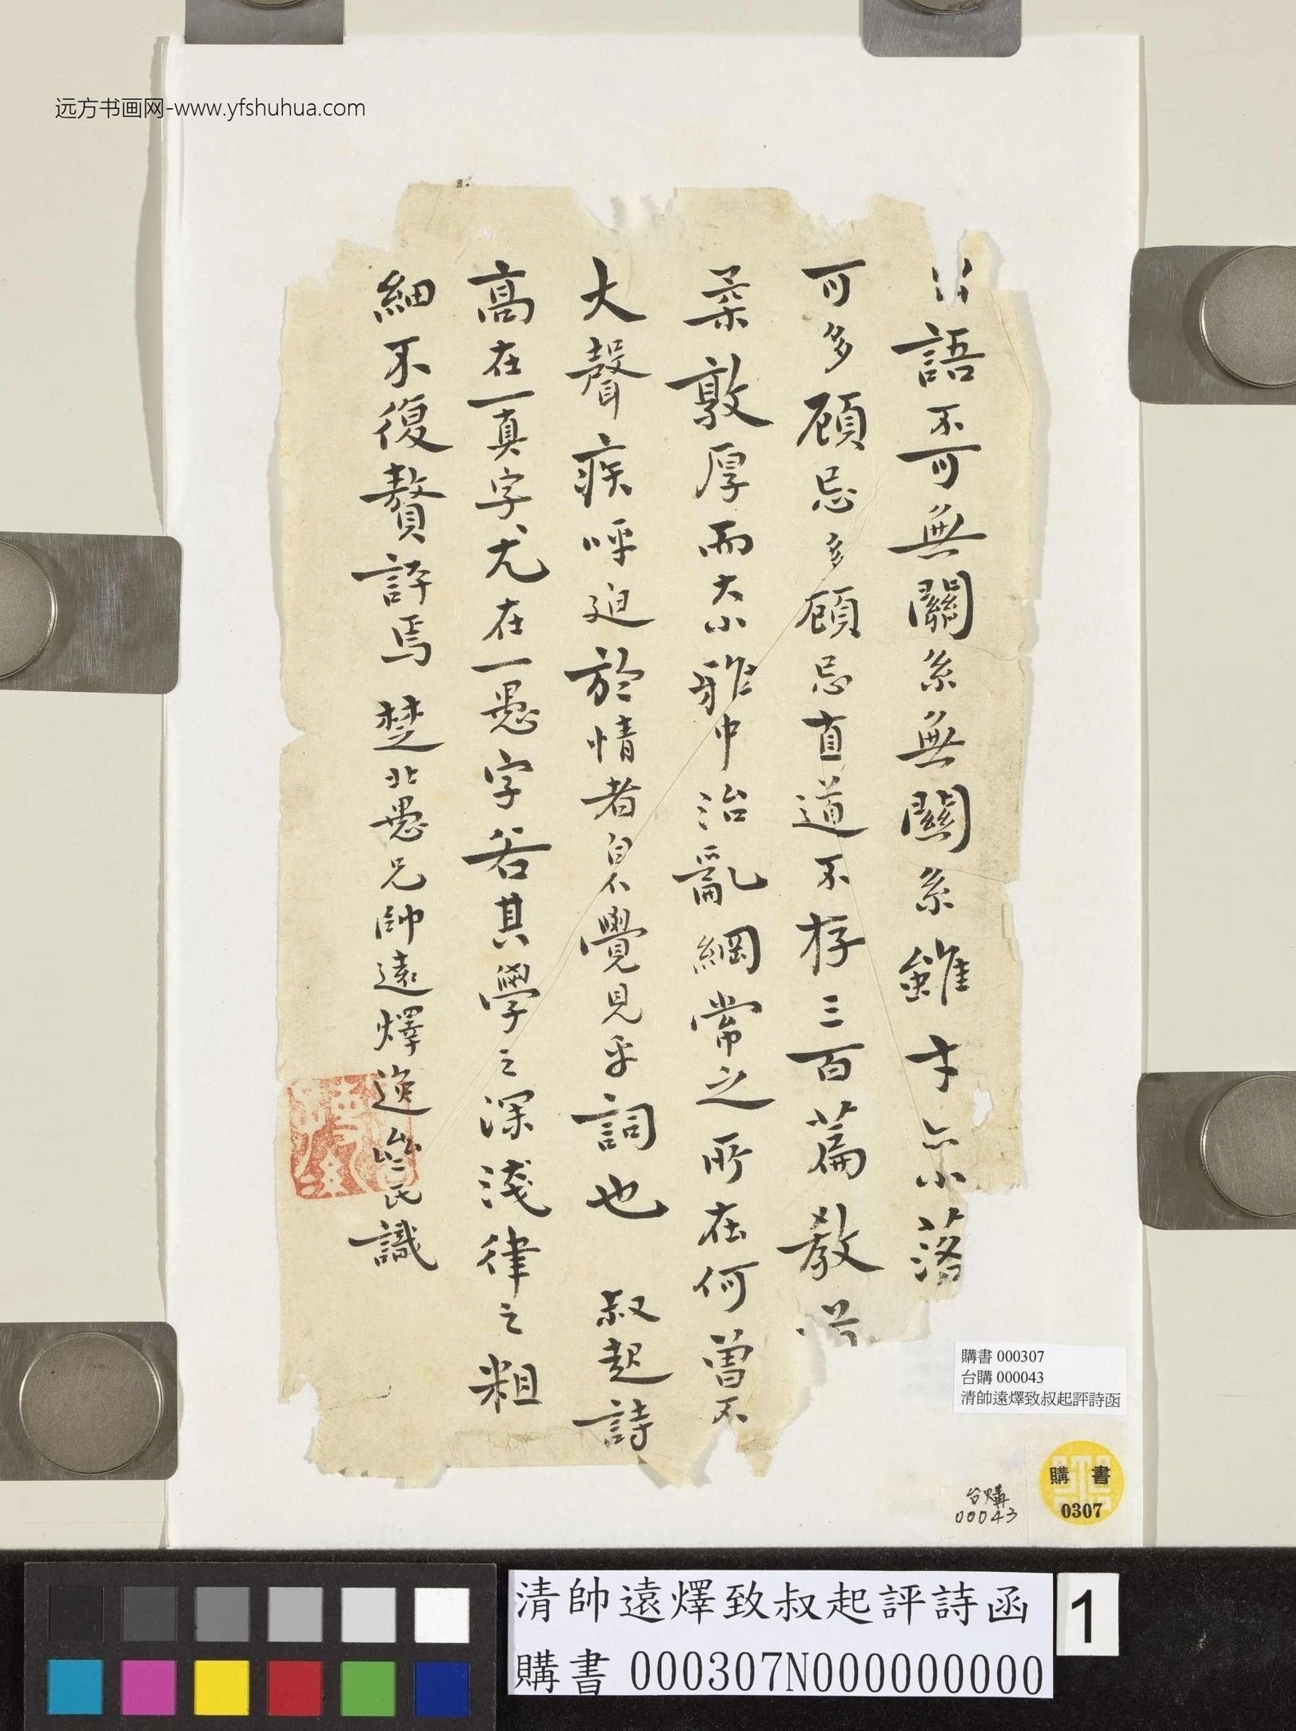 远方书画网-www.yfshuhua.com
語不可無關系無關系雖才亦落
可多顧忌多顧忌直道不存三百篇教
柔敦厚而大小雅中治亂綱常之所在何曾不
大聲疾呼迫於情者自不覺見乎詞也 叔起詩
高在一真字尤在一愚字若其學之深淺律之粗
細不復贅評焉 楚北愚兄帥遠燡逸民識
購書 000307
台購 000043
清帥遠燡致叔起評詩函
台購
00043
購 書
0307
清帥遠燡致叔起評詩函
購書 000307N000000000
1